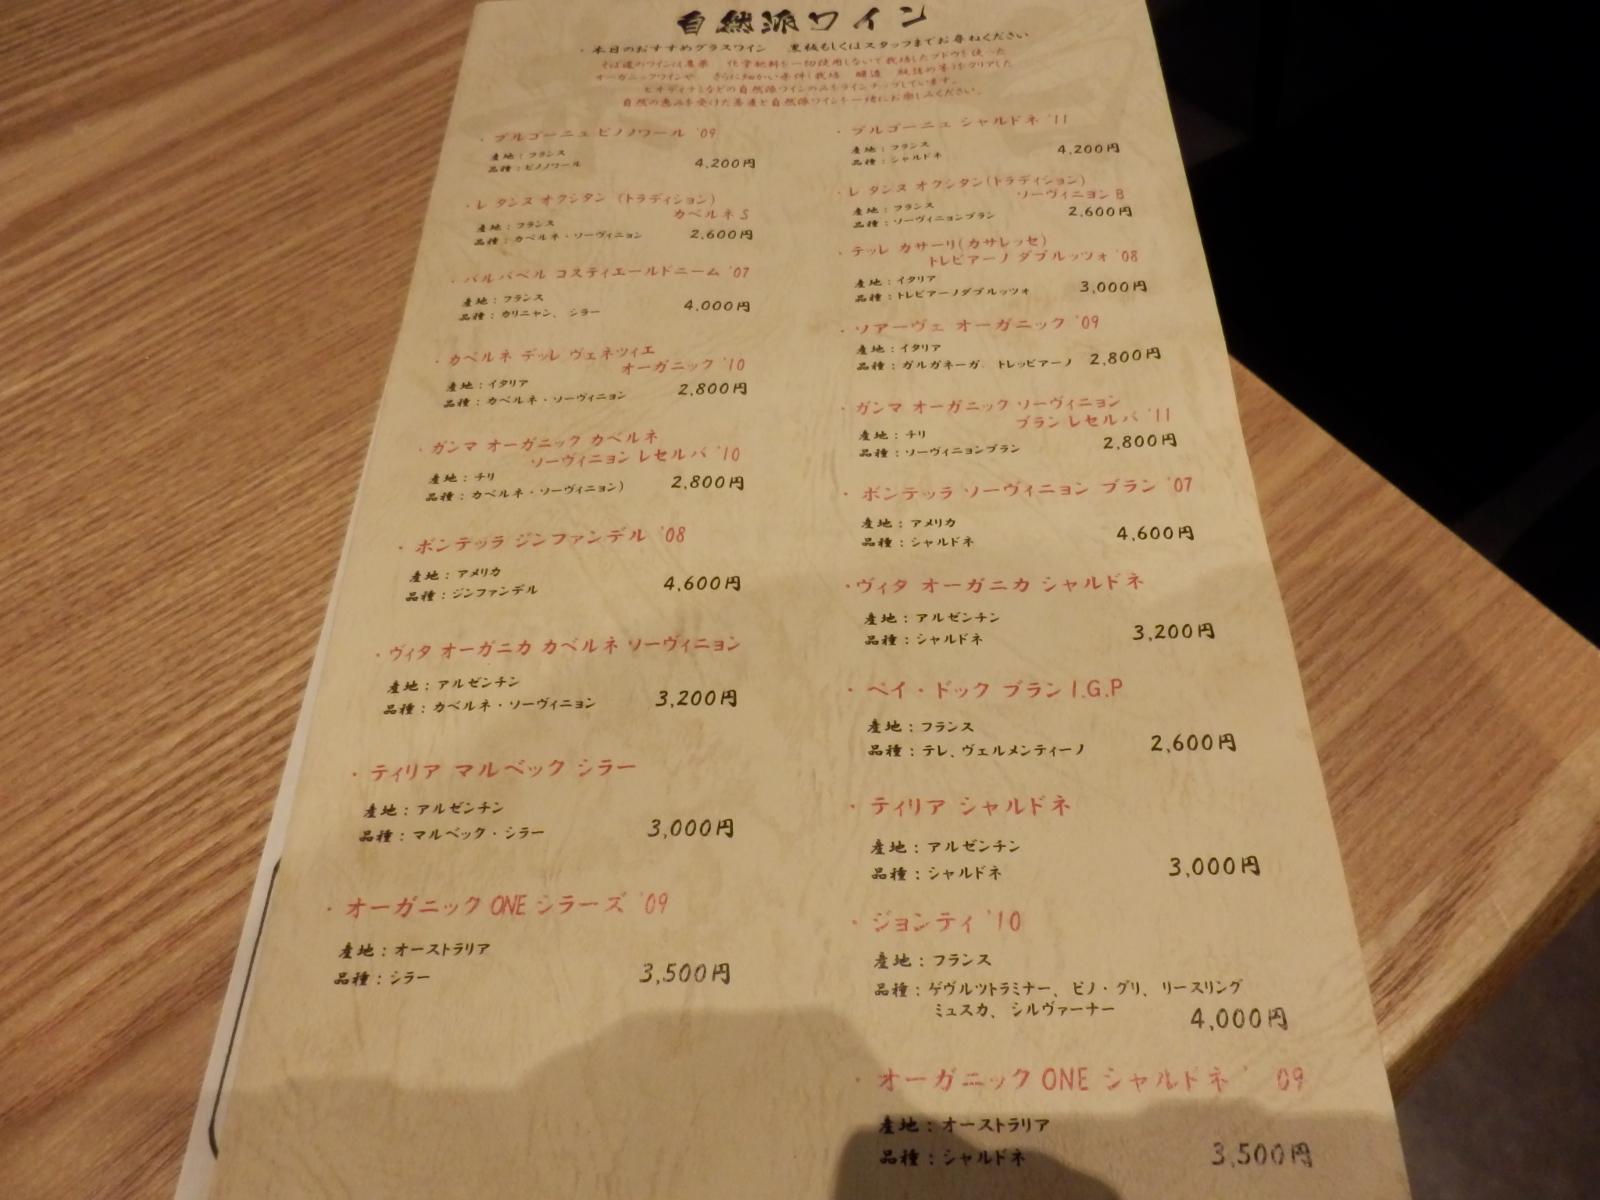 自然派ワイン
・本日のおすすめグラスワイン 黒板もしくはスタッフまでお尋ねください
そば道のワインは農薬 化学肥料を一切使用しないで栽培したブドウを使った
オーガニックワインや、さらに細かい条件(栽培 醸造 瓶詰め等)をクリアした
ビオディナミなどの自然派ワインのみをラインナップしています。
自然の恵みを受けた蕎麦と自然派ワインを一緒にお楽しみください。
・ブルゴーニュ ピノノワール '09
産地：フランス
品種：ピノノワール 4,200円
・レ タンヌ オクシタン (トラディション)
カベルネ S
産地：フランス
品種：カベルネ・ソーヴィニヨン 2,600円
・バルバベル コスティエールドニーム '07
産地：フランス
品種：カリニャン、シラー 4,000円
・カベルネ デッレ ヴェネツィエ
オーガニック '10
産地：イタリア
品種：カベルネ・ソーヴィニヨン 2,800円
・ガンマ オーガニック カベルネ
ソーヴィニョン レセルバ '10
産地：チリ
品種：カベルネ・ソーヴィニョン) 2,800円
・ボンテッラ ジンファンデル '08
産地：アメリカ
品種：ジンファンデル 4,600円
・ヴィタ オーガニカ カベルネ ソーヴィニョン
産地：アルゼンチン
品種：カベルネ・ソーヴィニョン 3,200円
・ティリア マルベック シラー
産地：アルゼンチン
品種：マルベック・シラー 3,000円
・オーガニック ONE シラーズ '09
産地：オーストラリア
品種：シラー 3,500円
・ブルゴーニュ シャルドネ '11
産地：フランス
品種：シャルドネ 4,200円
・レ タンヌ オクシタン(トラディション)
ソーヴィニヨン B
産地：フランス
品種：ソーヴィニヨンブラン 2,600円
・テッレ カサーリ(カサレッセ)
トレビアーノ ダブルッツォ '08
産地：イタリア
品種：トレビアーノダブルッツォ 3,000円
・ソアーヴェ オーガニック '09
産地：イタリア
品種：ガルガネーガ トレッビアーノ 2,800円
・ガンマ オーガニック ソーヴィニョン
ブラン レセルバ '11
産地：チリ
品種：ソーヴィニョンブラン 2,800円
・ボンテッラ ソーヴィニョン ブラン '07
産地：アメリカ
品種：シャルドネ 4,600円
・ヴィタ オーガニカ シャルドネ
産地：アルゼンチン
品種：シャルドネ 3,200円
・ペイ・ドック ブラン I.G.P
産地：フランス
品種：テレ、ヴェルメンティーノ 2,600円
・ティリア シャルドネ
産地：アルゼンチン
品種：シャルドネ 3,000円
・ジョンティ '10
産地：フランス
品種：ゲヴルツトラミナー、ピノ・グリ、リースリング
ミュスカ、シルヴァーナー 4,000円
・オーガニック ONE シャルドネ ' 09
産地：オーストラリア
品種：シャルドネ 3,500円